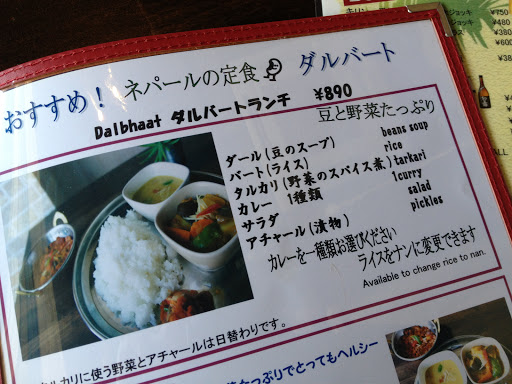 おすすめ！ ネパールの定食 ダルバート
Dalbhaat ダルバートランチ ¥890
豆と野菜たっぷり
ダール(豆のスープ) beans soup
バート(ライス) rice
タルカリ(野菜のスパイス煮) tarkari
カレー 1種類 1curry
サラダ salad
アチャール(漬物) pickles
カレーを一種類お選びください
ライスをナンに変更できます
Available to change rice to nan.
タルカリに使う野菜とアチャールは日替わりです。
たっぷりでとってもヘルシー
ジョッキ ¥750
ジョッキ
¥380